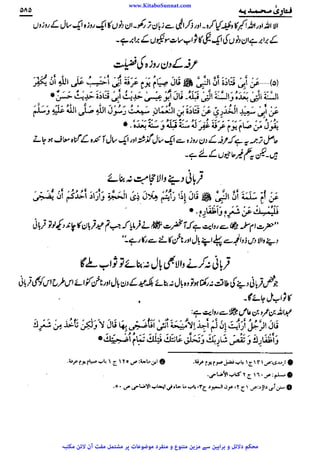 www.KitaboSunnat.com
فتاویٰ محمدیہ
۵۸۵
الا اللہ اور اللہ اکبر کا وظیفہ کیا کرو۔ اور ذکر الٰہی سے زبان تر رکھو۔ ان دنوں کا ایک روزہ ایک سال کے روزوں
کے برابر ہے ان دنوں کی ایک نیکی کا ثواب سات سو نیکیوں کے برابر ہے۔
عرفہ کے دن روزہ کی فضیلت
(۵)...... عَنْ أَبِي قَتَادَةَ أَنَّ النَّبِيَّ ﷺ قَالَ صِيَامُ يَوْمِ عَرَفَةَ أَنِّي أَحْتَسِبُ عَلَى اللَّهِ أَنْ يُكَفِّرَ
السَّنَةَ الَّتِي بَعْدَهُ وَالسَّنَةَ الَّتِي قَبْلَهُ۔ قَالَ أَبُو عِيسَى حَدِيثُ أَبِي قَتَادَةَ حَدِيثٌ حَسَنٌ
عَنْ أَبِي سَعِيدٍ الْخُدْرِيِّ عَنْ قَتَادَةَ بْنِ النُّعْمَانِ سَمِعْتُ رَسُولَ اللَّهِ صَلَّى اللَّهُ عَلَيْهِ وَسَلَّمَ
يَقُولُ مَنْ صَامَ يَوْمَ عَرَفَةَ غُفِرَ لَهُ سَنَةٌ قَبْلَهُ وَسَنَةٌ بَعْدَهُ۔
حاصل ترجمہ یہ ہے کہ عرفہ کے دن روزہ سے ایک سال گذشتہ اور ایک سال آئندہ کے گناہ معاف ہو جاتے
ہیں۔ لیکن یہ حکم غیر حاجیوں کے لئے ہے۔
قربانی دینے والا حجامت نہ بنائے
عَنْ أُمِّ سَلَمَةَ أَنَّ النَّبِيَّ ﷺ قَالَ إِذَا رَأَيْتُمْ هِلَالَ ذِي الْحِجَّةِ وَأَرَادَ أَحَدُكُمْ أَنْ يُضَحِّيَ
فَلْيُمْسِكْ عَنْ شَعْرِهِ وَأَظْفَارِهِ۔
"حضرت ام سلمہ سے روایت ہے کہ آنحضرت ﷺ نے فرمایا کہ جب تم عید قربان کا چاند دیکھ لو تو قربانی
قربانی نہ کرنے والا بھی بال نہ بنائے تو ثواب ملے گا
جو شخص قربانی دینے کی طاقت نہ رکھتا ہو وہ بال نہ بنائے بلکہ عید کے دن بال اور ناخن کٹوائے اس طرح اس کو بھی قربانی
کا ثواب مل جائے گا۔
عبداللہ بن عمرو بن عاص سے روایت ہے:
قَالَ الرَّجُلُ أَرَأَيْتَ إِنْ لَمْ أَجِدْ إِلَّا مَنِيحَةً أُنْثَى أَفَأُضَحِّي بِهَا قَالَ لَا وَلَكِنْ تَأْخُذُ مِنْ شَعْرِكَ
وَأَظْفَارِكَ وَتَقُصُّ شَارِبَكَ وَتَحْلِقُ عَانَتَكَ فَتِلْكَ تَمَامُ أُضْحِيَّتِكَ
ترمذی: ص ۱۳۱ ج ۱ باب فضل صوم یوم عرفة۔
ابن ماجة: ص ۱۲۵ ج ۱ باب صیام یوم عرفة۔
مسلم: ص ۱۶۰ ج ۲ کتاب الأضاحی۔
محکم دلائل و براہین سے مزین متنوع و منفرد موضوعات پر مشتمل مفت آن لائن مکتبہ